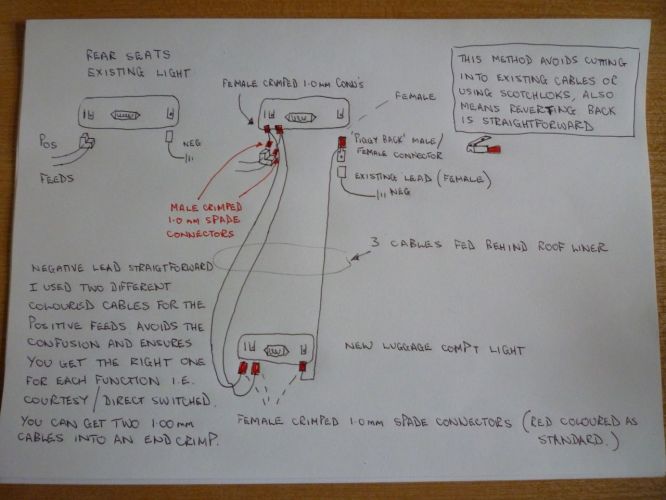 REAR SEATS
EXISTING LIGHT
POS
FEEDS
NEG
FEMALE CRIMPED 1.0mm CONN'S
FEMALE
'PIGGY BACK' MALE/
FEMALE CONNECTOR
EXISTING LEAD (FEMALE)
NEG
MALE CRIMPED
1.0mm SPADE
CONNECTORS
THIS METHOD AVOIDS CUTTING
INTO EXISTING CABLES OR
USING SCOTCHLOKS, ALSO
MEANS REVERTING BACK
IS STRAIGHTFORWARD
3 CABLES FED BEHIND ROOF LINER
NEGATIVE LEAD STRAIGTFORWARD
I USED TWO DIFFERENT
COLOURED CABLES FOR THE
POSITIVE FEEDS AVOIDS THE
CONFUSION AND ENSURES
YOU GET THE RIGHT ONE
FOR EACH FUNCTION I.E.
COURTESY/DIRECT SWITCHED.
YOU CAN GET TWO 1.00mm
CABLES INTO AN END CRIMP.
NEW LUGGAGE COMPT LIGHT
FEMALE CRIMPED 1.0mm SPADE CONNECTORS (RED COLOURED AS
STANDARD.)